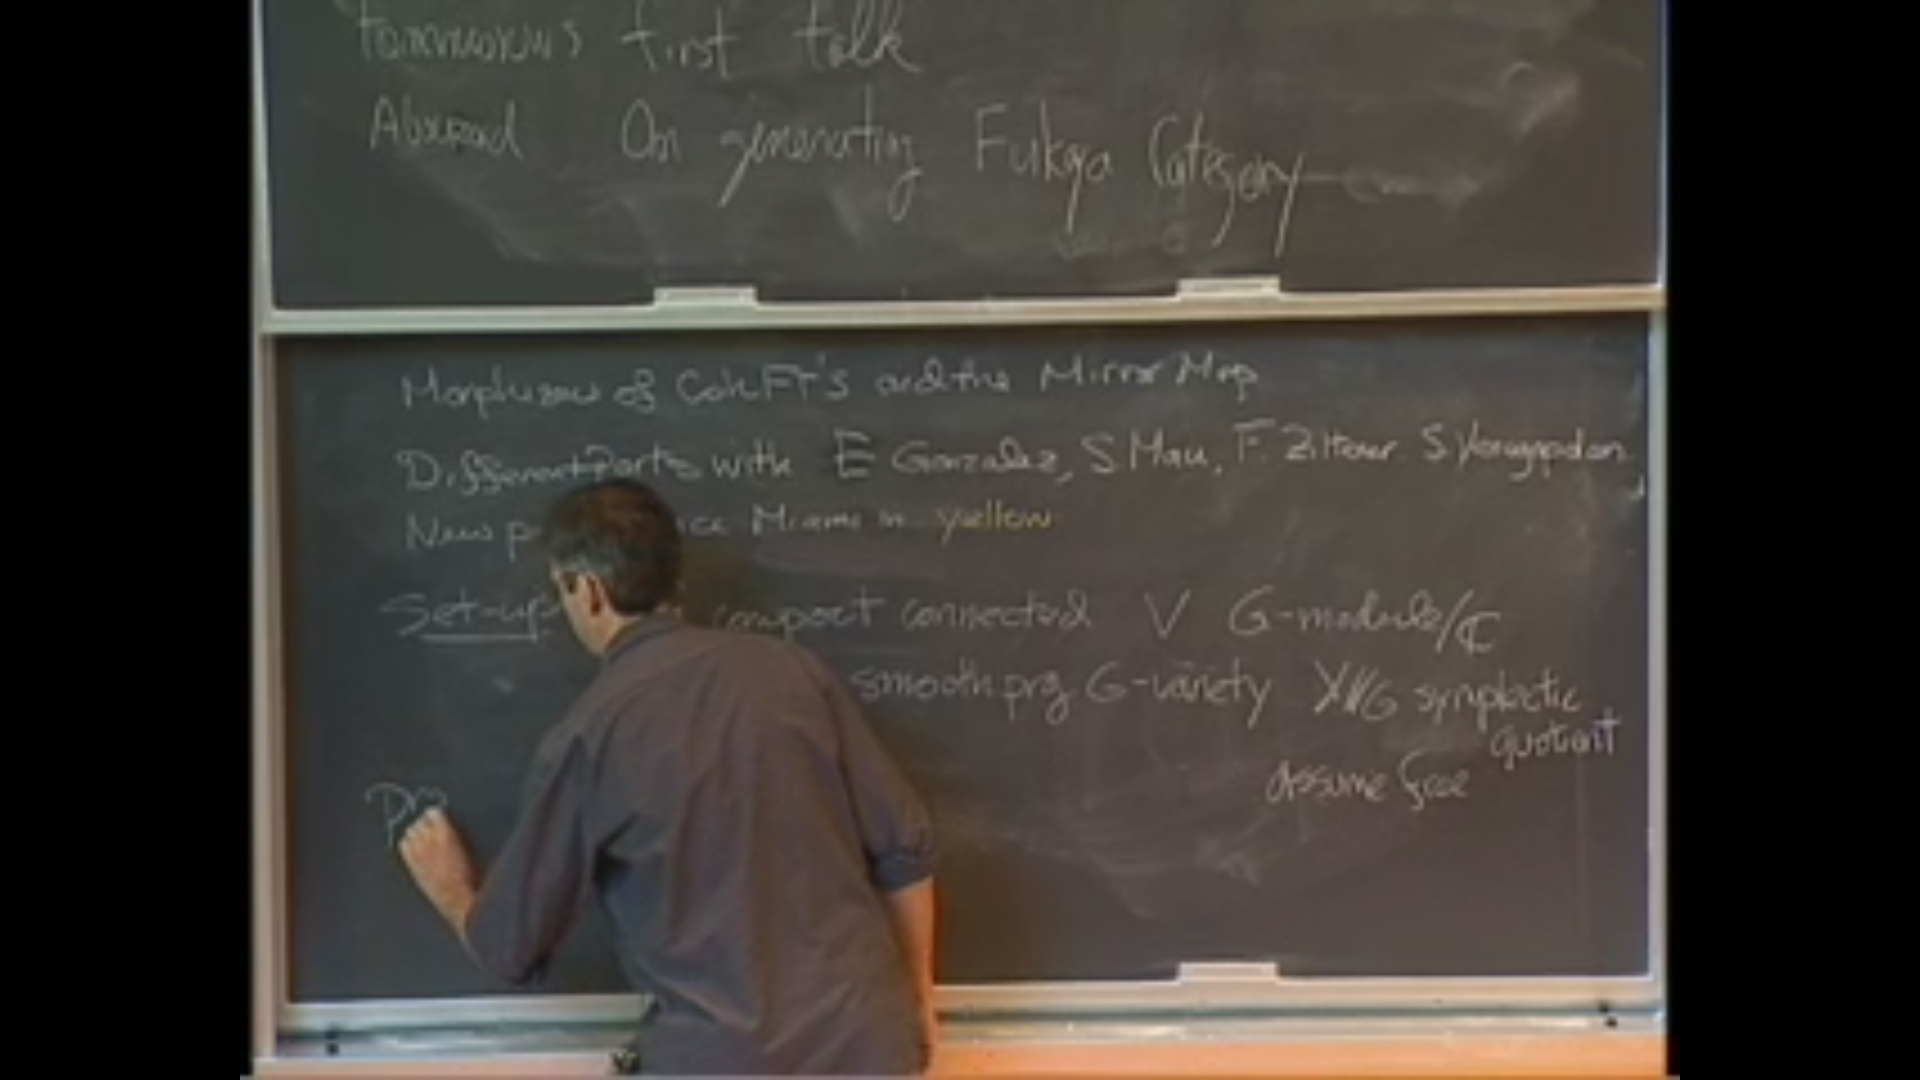 Tommorows first talk
Abouzaid On generating Fukaya Category
Morphisms of CohFT's and the Mirror Map
Different Parts with E Gonzalez, S. Mau, F. Ziltener S.
New Miami in yellow
Set-up compact connected V G-module/ℂ
smooth proj G-variety X//G symplectic
quotient
assume free